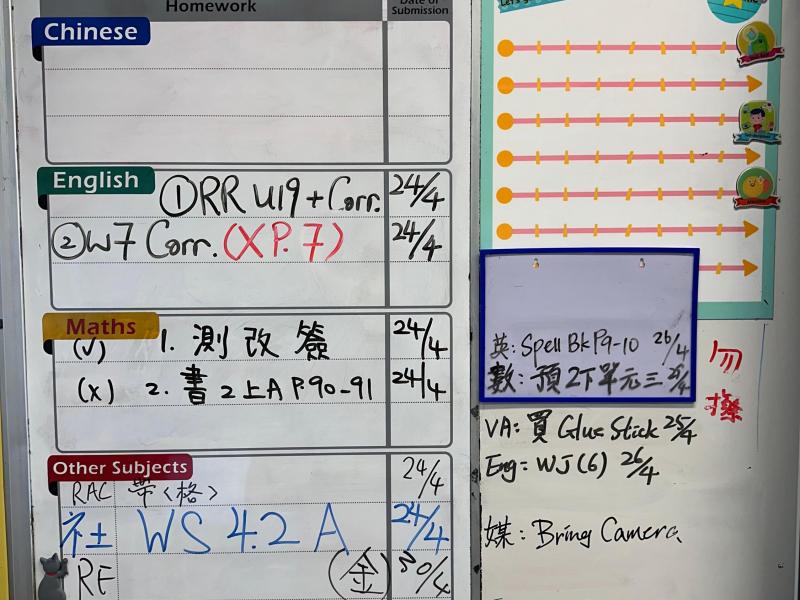 Homework
Date of Submission
Chinese
English
① RR U19 + Corr. 24/4
② W7 Corr. (X P.7) 24/4
Maths
(✓) 1. 測改簽 24/4
(x) 2. 書2上A P.90-91 24/4
Other Subjects
RAC 帶<格> 24/4
社 WS 4.2 A 24/4
RE (金) 30/4
英: Spell Bk P9-10 26/4
數: 預2下單元三 25/4
勿擦
VA: 買 Glue Stick 25/4
Eng: WJ(6) 26/4
媒: Bring Camera